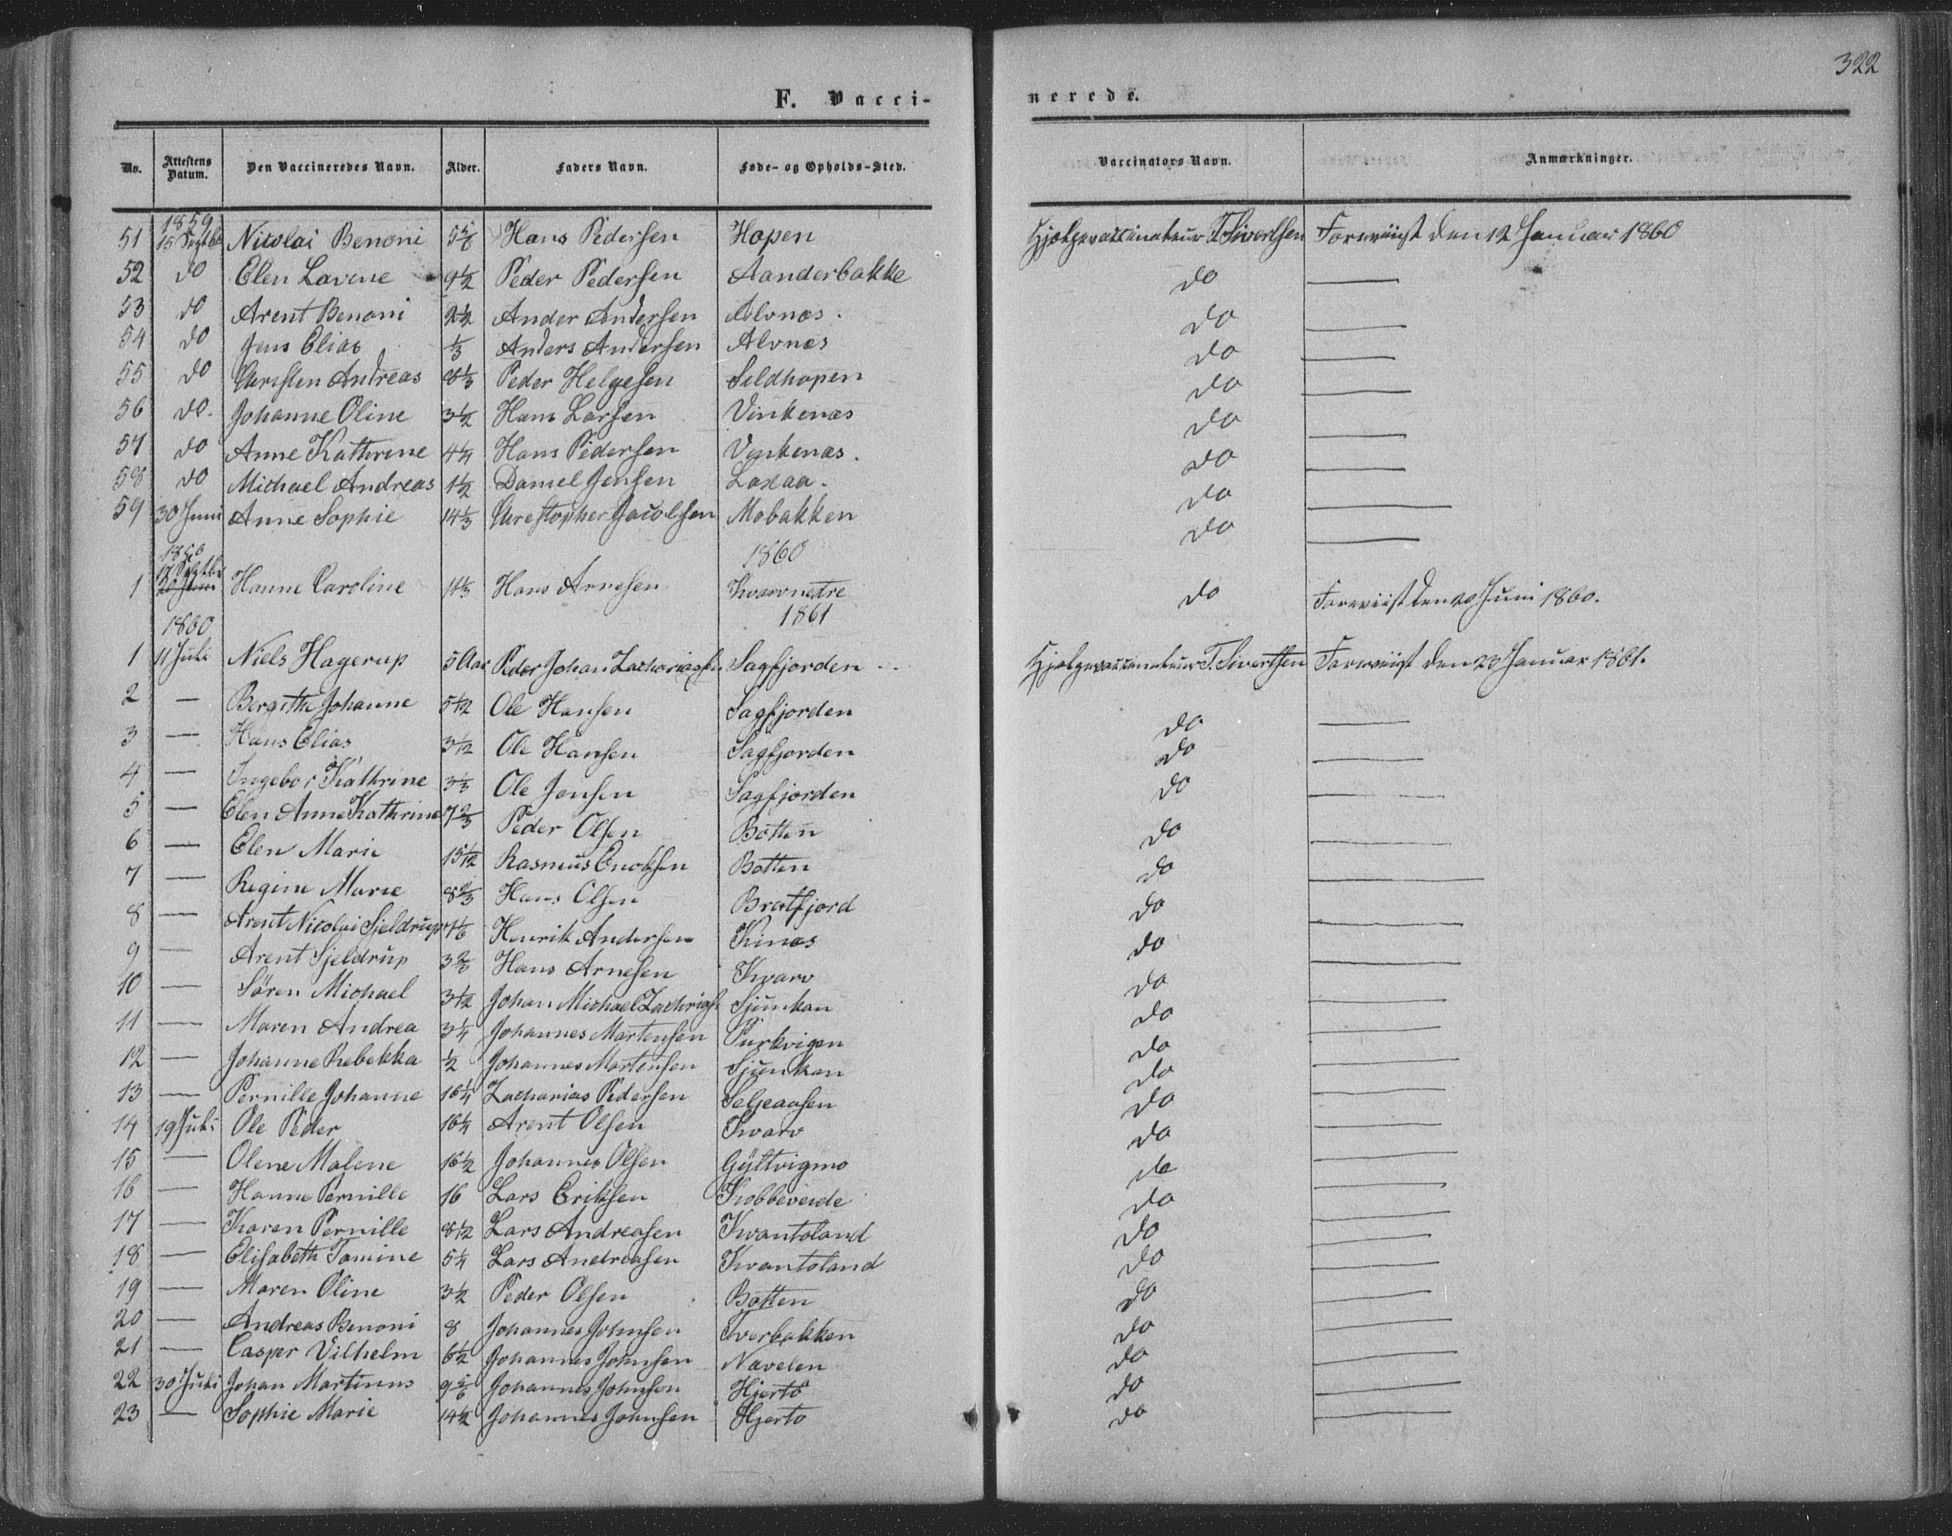 322
F. Vacci-
nerede.
No. Attestens Datum. Den Vaccineredes Navn. Alder. Faders Navn. Føde- og Opholds-Sted. Vaccinators Navn. Anmærkninger.
1859
51 15 Septbr Nicolai Benoni 5 5/6 Hans Pedersen Hopen Hjælpevaccinateur T. Sivertsen Foreviist den 12 Januar 1860
52 do Elen Lovene 9 1/2 Peder Pedersen Aanderbakke do —
53 do Arent Benoni 2 1/2 Ander Andersen Alvnæs. do —
54 do Jens Elias 1/3 Anders Andersen Alvnæs do —
55 do Christen Andreas 8 1/3 Peder Helgesen Sildhopen do —
56 do. Johanne Oline 3 1/2 Hans Larsen Vinkenæs do —
57 do Anne Kathrine 4 1/4 Hans Pedersen Vinkenæs. do —
58 do Michael Andreas 1 1/2 Daniel Jensen Laxaa. do —
59 30 Juni Anne Sophie 14 1/3 Christopher Jacobsen Mobakken do —
1860
1860
1 17 Septbr Hanne Caroline Hans Arnesen Kvarvnedre do Foreviist den 20 Juni 1860.
1860
1861
1 11 Juli Niels Hagerup 5 Aar Peder Johan Zachariassen Sagfjorden Hjælpevaccinateur T. Sivertsen Foreviist den 23 Januar 1861.
2 — Bergith Johanne 5 1/12 Ole Hansen Sagfjorden do —
3 — Hans Elias 3 1/12 Ole Hansen Sagfjorden do —
4 — Ingebor Kathrine 3 1/3 Ole Jensen Sagfjorden do —
5 — Elen Anne Kathrine 7 2/3 Peder Olsen Botten do —
6 — Elen Marie 15 1/12 Rasmus Enoksen Botten do —
7 — Regine Marie 8 2/3 Hans Olsen Bratfjord do —
8 — Arent Nicolai Sjeldrup 1/6 Henrik Andersen Kinæs do —
9 — Arent Sjeldrup 3 Hans Arnesen Kvarv do —
10 — Sören Michael 3 1/12 Johan Michael Zachrias Sjunkan do —
11 — Maren Andrea 3 1/4 Johannes Martensen Purkvigen do —
12 — Johanne Rebekka 1/2 Johannes Martensen Sjunkan do —
13 — Pernille Johanne 16 1/4 Zacharias Pedersen Seljeaasen do —
14 19 Juli Ole Peder 16 1/4 Arent Olsen Kvarv do —
15 — Olene Malene 16 1/2 Johannes Olsen Gyltvigmo do —
16 — Hanne Pernille 16 Lars Eriksen Kobbeveide do —
17 — Karen Pernille 8 1/12 Lars Andreasen Kvantoland do —
18 — Elisabeth Tomine 5 1/4 Lars Andreasen Kvantoland do —
19 — Maren Oline 3 1/2 Peder Olsen Botten do —
20 — Andreas Benoni 8 Johannes Johnsen Tverbakken do —
21 — Casper Vilhelm 6 1/2 Johannes Johnsen Navelen do —
22 30 Juli Johan Martinus 9 5/6 Johannes Johnsen Hjertö do —
23 — Sophie Marie 14 1/2 Johannes Johnsen Hjertö do —